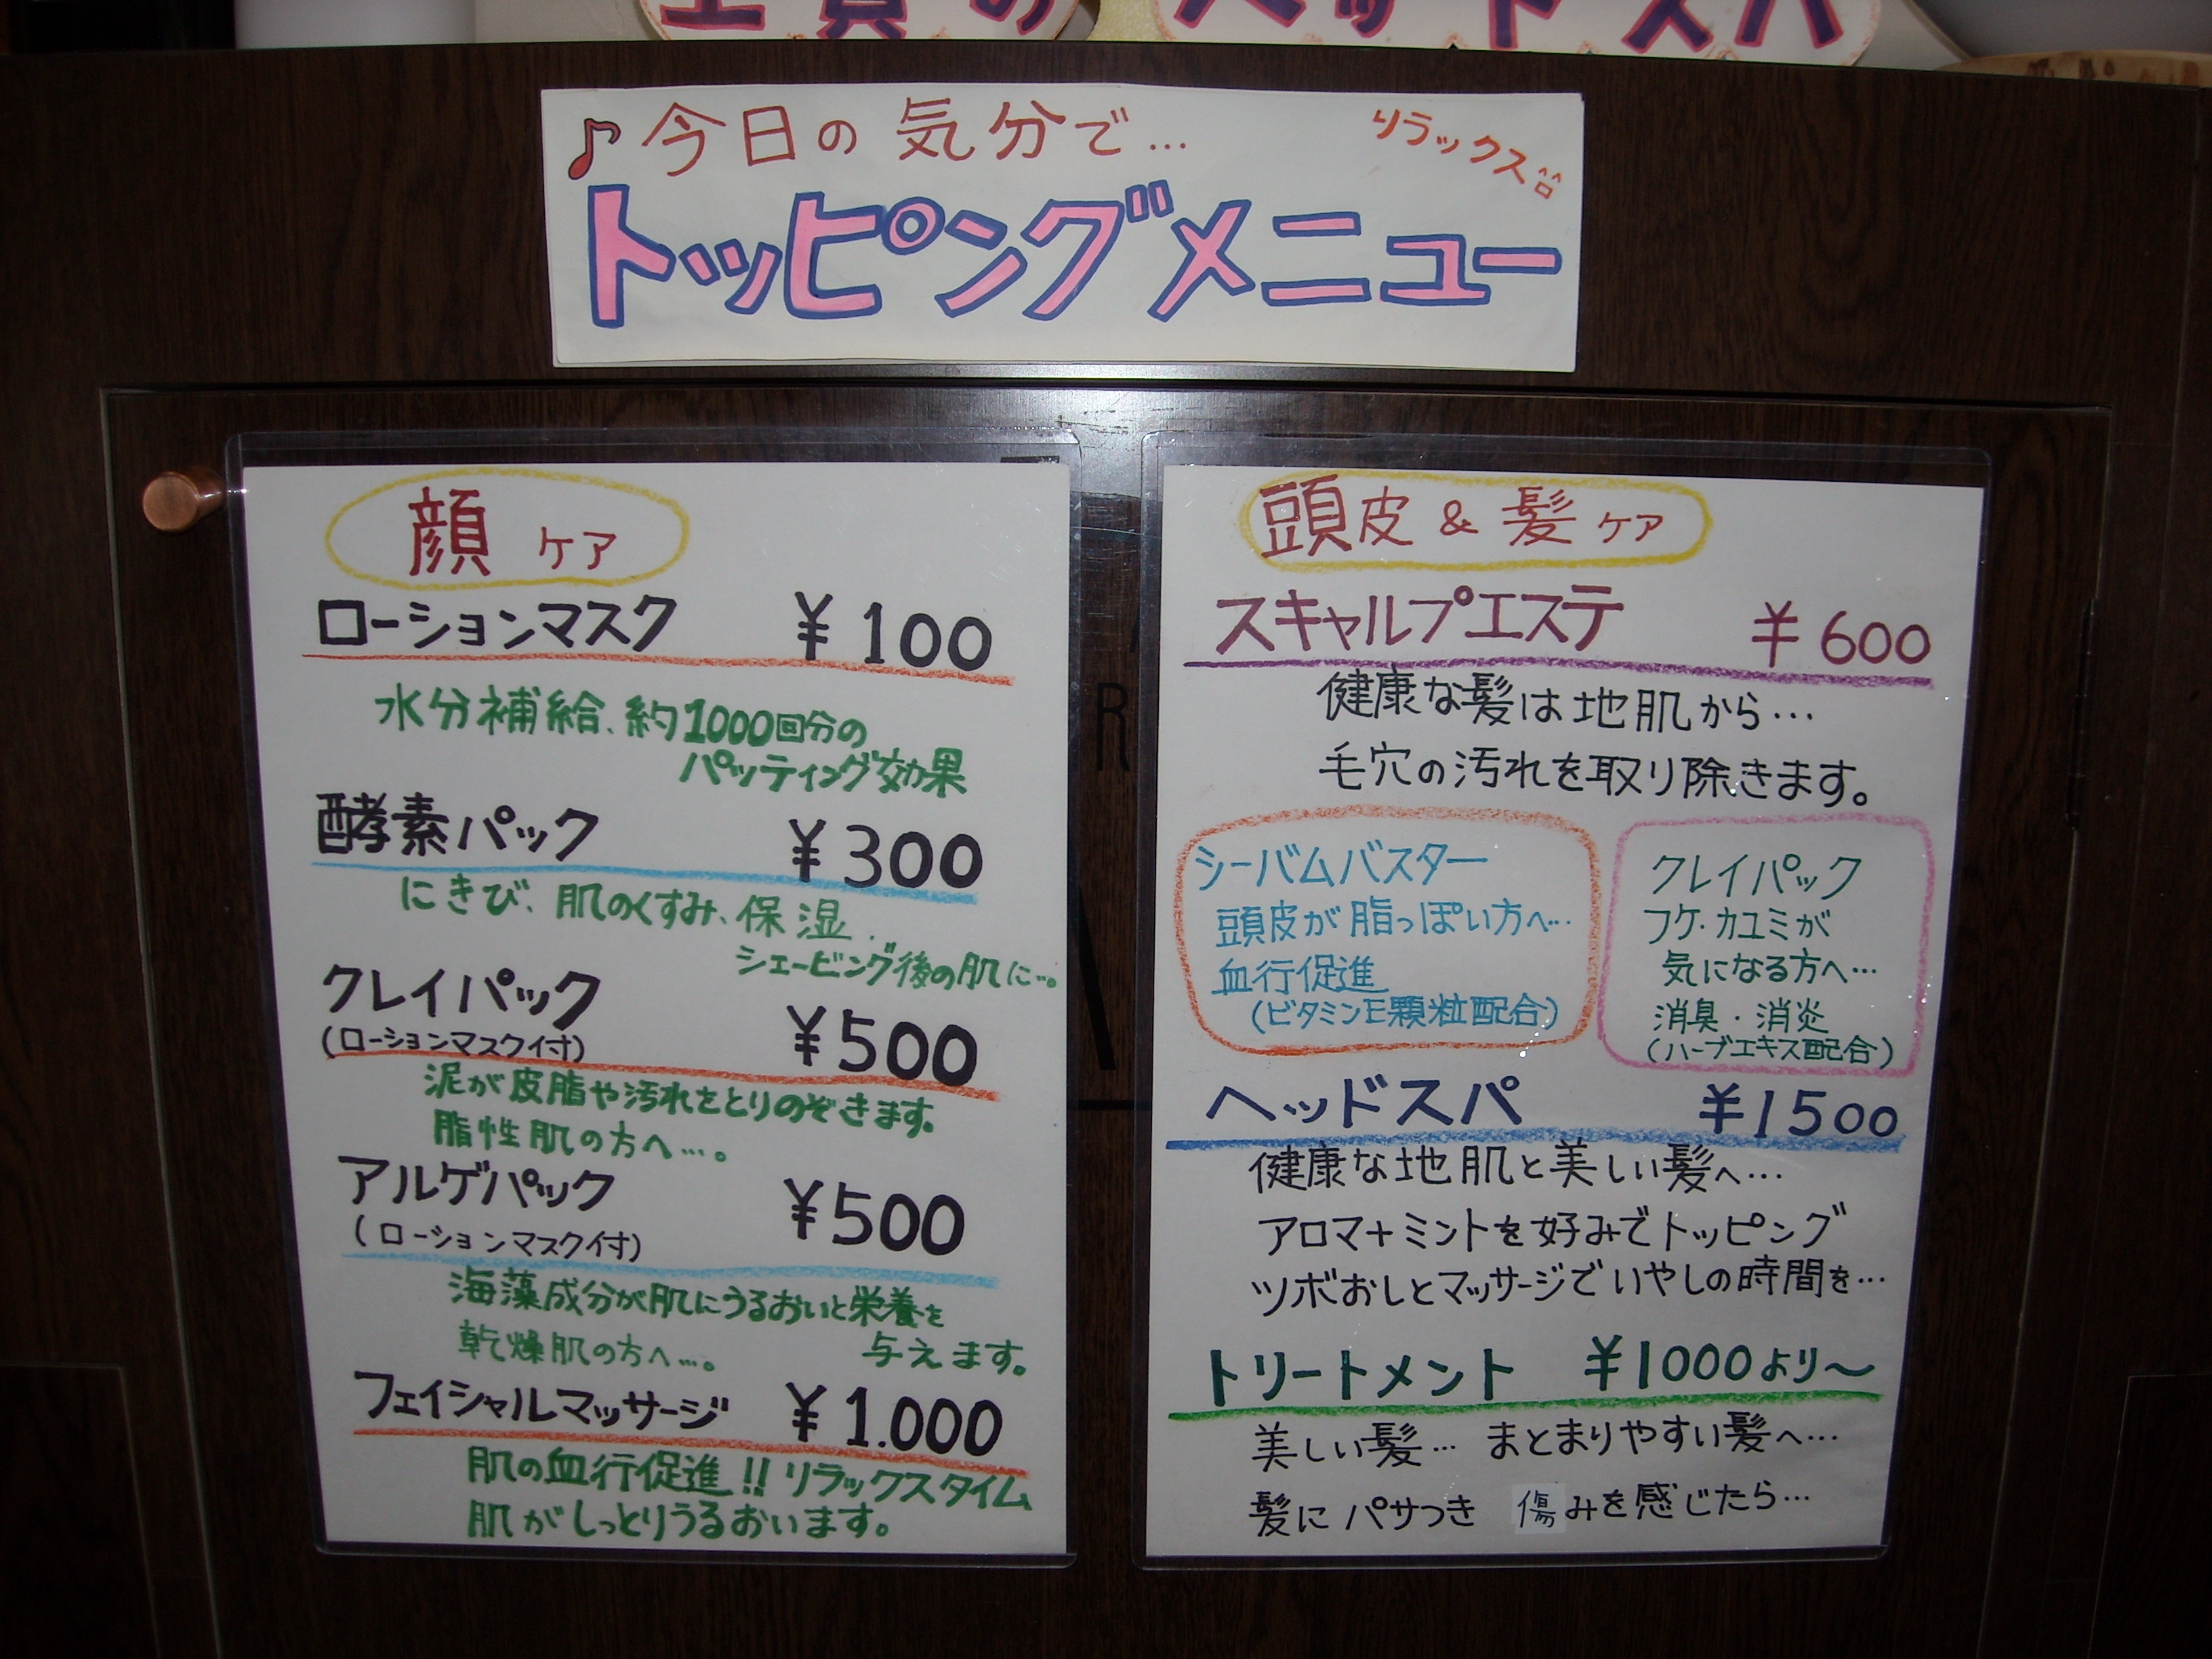 ヘッドスパ
♪今日の気分で…
リラックス
トッピングメニュー
顔ケア
ローションマスク ¥100
水分補給、約1000回分の
パッティング効果
酵素パック ¥300
にきび、肌のくすみ、保湿、
シェービング後の肌に…。
クレイパック ¥500
(ローションマスク付)
泥が皮脂や汚れをとりのぞきます。
脂性肌の方へ…。
アルゲパック ¥500
(ローションマスク付)
海藻成分が肌にうるおいと栄養を
与えます。
乾燥肌の方へ…。
フェイシャルマッサージ ¥1.000
肌の血行促進!!リラックスタイム
肌がしっとりうるおいます。
頭皮&髪ケア
スキャルプエステ ¥600
健康な髪は地肌から…
毛穴の汚れを取り除きます。
シーバムバスター
頭皮が脂っぽい方へ…
血行促進
(ビタミンE顆粒配合)
クレイパック
フケ・カユミが
気になる方へ…
消臭・消炎
(ハーブエキス配合)
ヘッドスパ ¥1500
健康な地肌と美しい髪へ…
アロマ+ミントを好みでトッピング
ツボおしとマッサージでいやしの時間を…
トリートメント ¥1000より～
美しい髪… まとまりやすい髪へ…
髪にパサつき 傷みを感じたら…